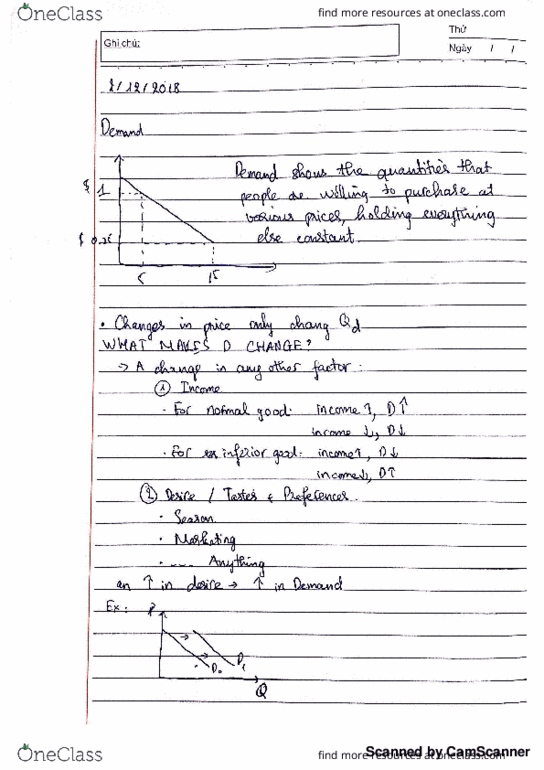 OneClass
find more resources at oneclass.com
Ghi chú:
Thứ
Ngày / /
2/12/2018
Demand
$ 1
$ 0.25
5 15
Demand shows the quantities that
people are willing to purchase at
various prices, holding everything
else constant.
• Changes in price only chang Qd
WHAT MAKES D CHANGE?
→ A change in any other factor:
① Income
· For normal good: income ↑, D↑
income ↓, D↓
· For inferior good: income↑, D↓
income↓, D↑
② Desire / Tastes & Preferences.
· Season
· Marketing
· ---- Anything
an ↑ in desire → ↑ in Demand
Ex:
P
D₀ D₁
Q
OneClass
find more resources at oneclass.com
Scanned by CamScanner